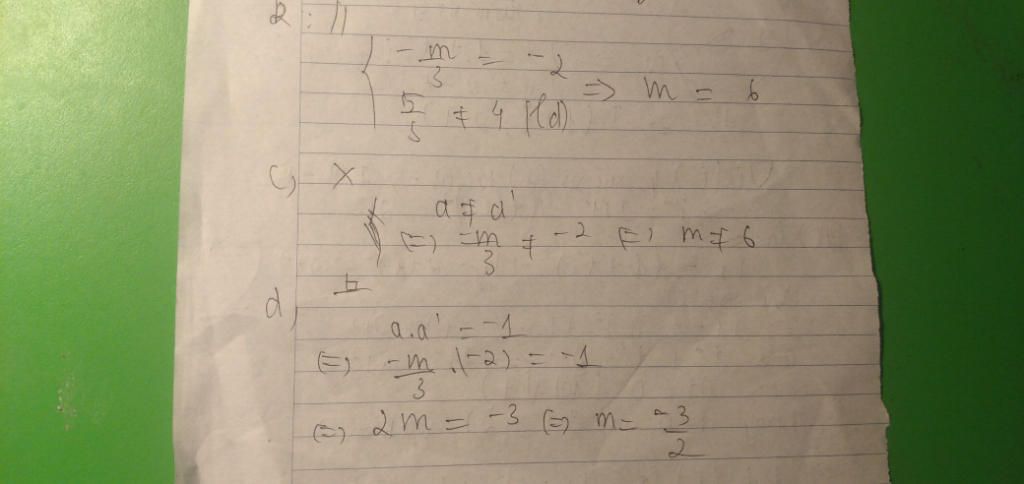 2: //
-m/3 = -2
⇒ m = 6
5/5 ≠ 4 (lđ)
c, X
a ≠ a'
⇔ -m/3 ≠ -2 ⇔ m ≠ 6
d, ⊥
a.a' = -1
⇔ -m/3 .(-2) = -1
⇔ 2m = -3 ⇔ m = -3/2